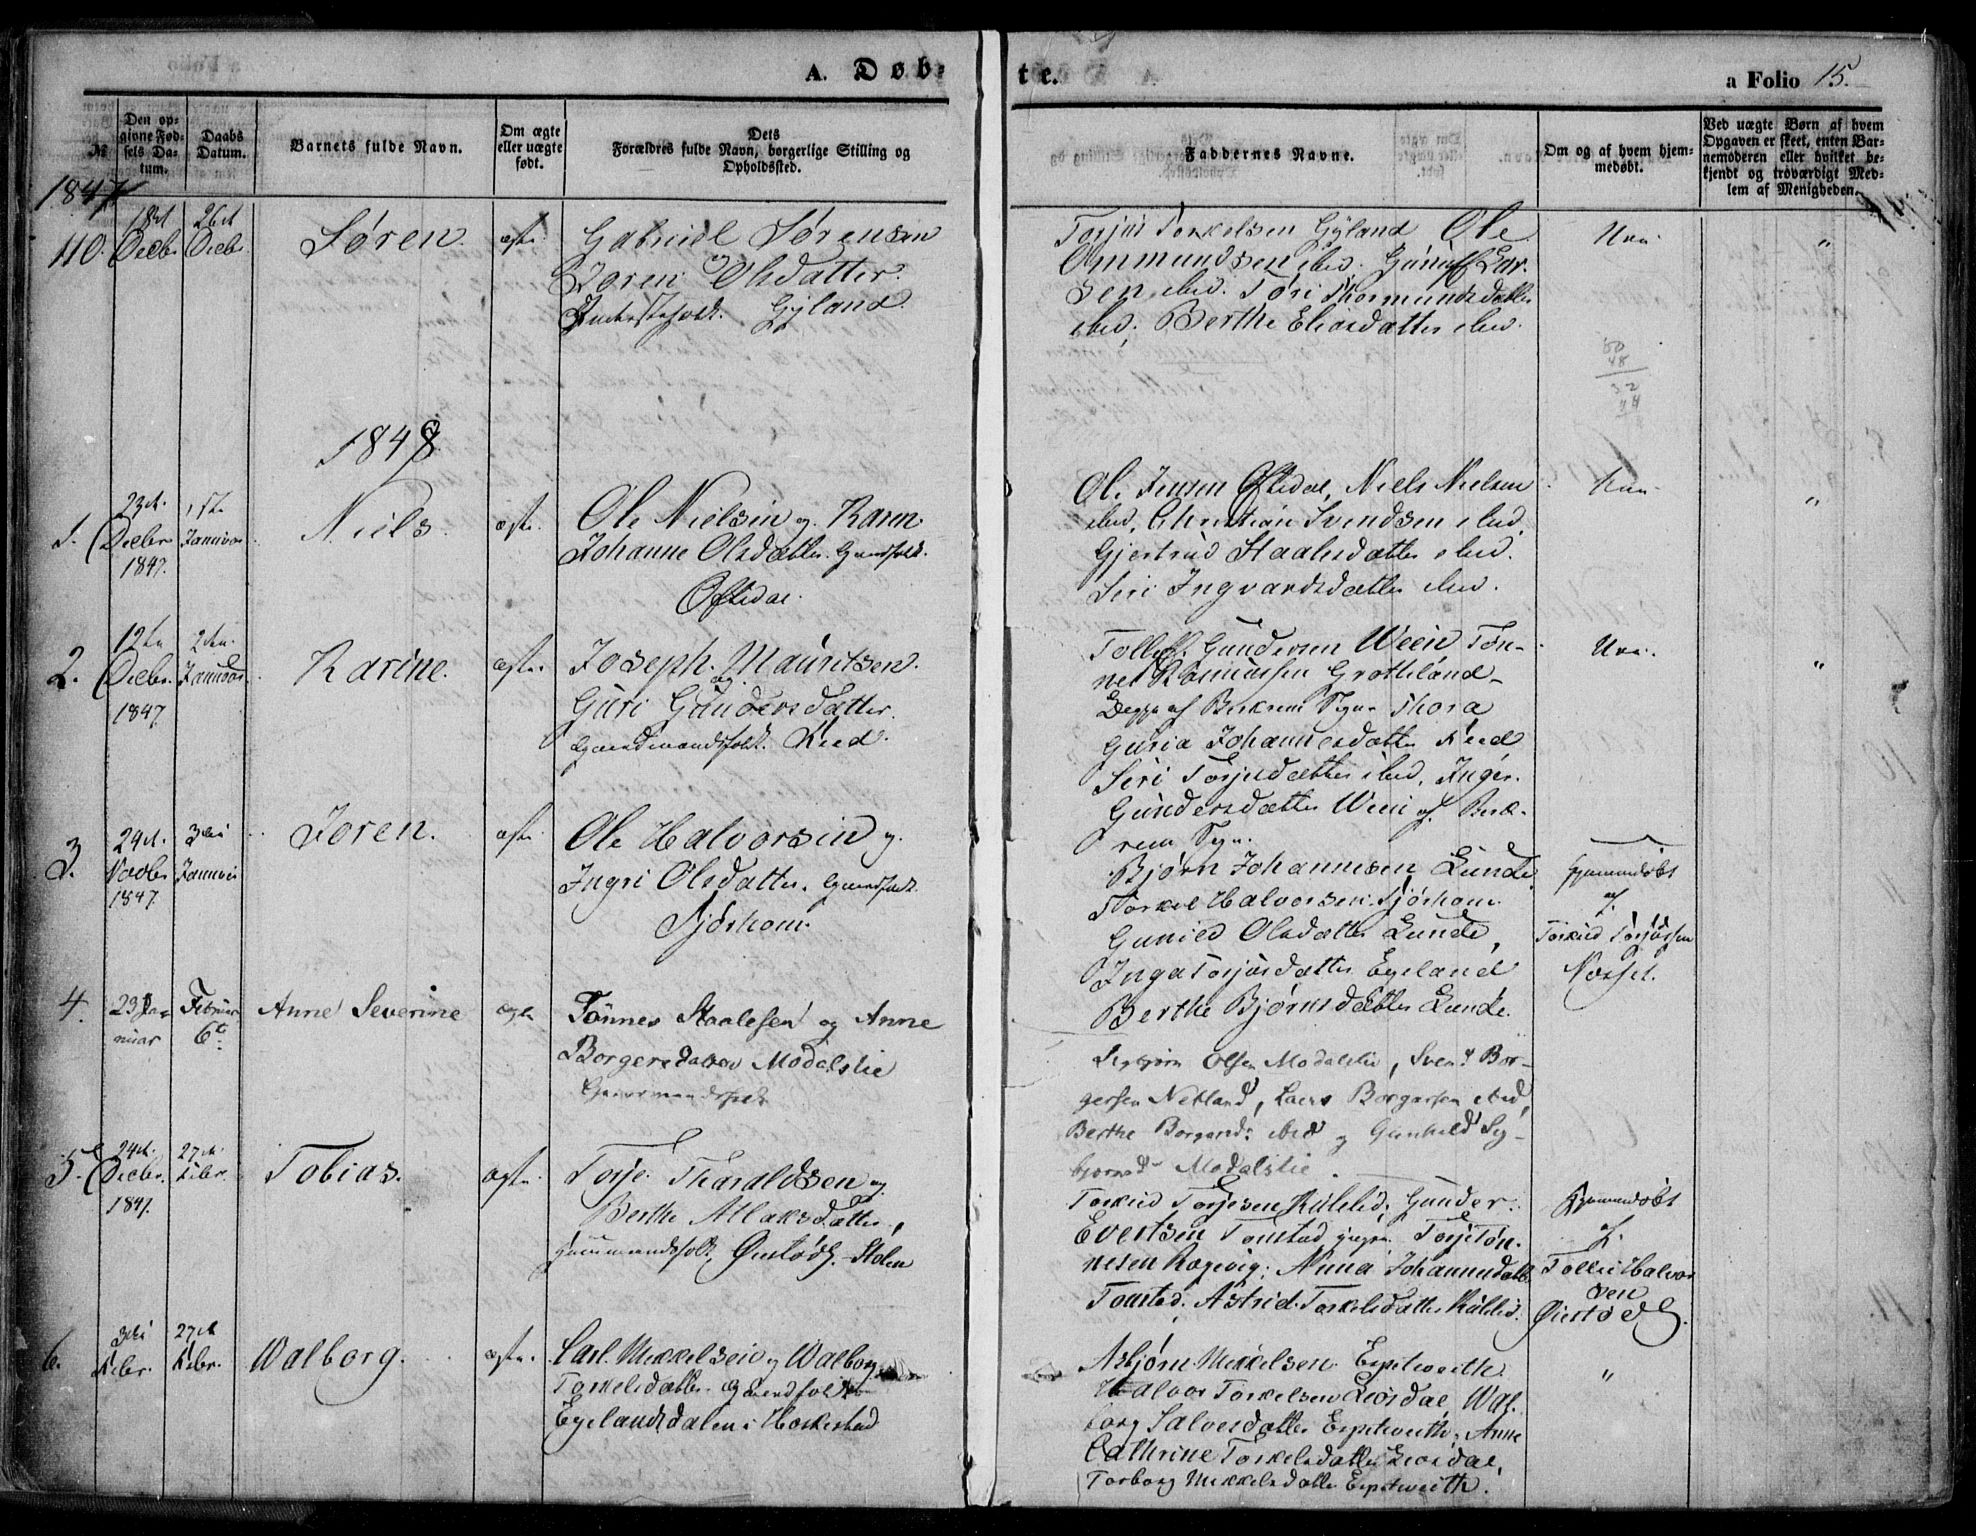 A. Døb-
te.
a Folio 15.
№
Den op-
givne Fød-
sels Da-
tum.
Daabs
Datum.
Barnets fulde Navn.
Om ægte
eller uægte
født.
Dets
Forældres fulde Navn, borgerlige Stilling og
Opholdssted.
Faddernes Navne.
Om og af hvem hjem-
medøbt.
Ved uægte Børn af hvem
Opgaven er skeet, enten Bar-
nemoderen eller hvilket be-
kjendt og troværdigt Med-
lem af Menigheden.
1847
110.
18de
Decbr
26de
Decbr
Søren.
ægte.
Gabriel Sørensen
Joren Olsdatter.
Gyland.
Torjus Torkelsen Gyland Ole
Ommundsen ibid. Lar-
sen ibid. Tori Thormundsdatter
ibid, Berthe Eliasdatter ibid.
"
1848.
1.
23de
Decbr
1847.
1ste
Januar
Niels.
ægte.
Ole Nielsen og Karen
Johanne Olsdatter. Gaardfolk.
Oftedal.
Ole Jensen Oftedal, Niels Nielsen
ibid, Christian Svendsen ibid,
Gjertrud Staalesdatter ibid.
Siri Ingvardsdatter ibid.
"
2.
12te
Decbr.
1847
2den
Januar
Karine.
ægte.
Joseph Mauritsen
og
Guri Gundersdatter.
Gaardmandsfolk. Lied.
Tollef Gundersen Ween Tøn-
nes Grotteland
af Berkrem Sogn Thora
Guria Johannesdatter
Siri Torjusdatter ibid, Inger
Gundersdatter Ween af Berk-
rem Sogn.
"
3.
24de
Novbr
1847.
3die
Januar
Joren.
ægte
Ole Halvorsen og
Ingri Olsdatter. Gaardfolk.
Sjørhom.
Bjørn Johannesen Lunde
Torkel Halvorsen Sjørhom.
Gunild Olsdatter Lunde,
Inga Torjusdatter Egeland
Berthe Bjørnsdatter Lunde.
Hjemmedøbt
af
Torkild Torjussen
4.
23 Ja-
nuar
Februar
6te
Anne Severine
ægte
Tønnes Staalesen og Anne
Borgersdatter Modalslie
Gaardmandsfolk
Sigbjørn Olsen Modalslie, Svend Bor-
gersen Netland, Lars Borgersen ibid,
Berthe Borgersd. ibid og Gunhild Sig-
bjørnsd. Modalslie.
5.
24de
Decbr.
1847.
27de
Febr.
Tobias.
ægte.
Torje Tharaldsen og
Berthe Atlaksdatter,
Stolen
Torkild Torjesen Gunder
Evertsen Tonstad Torje Tøn-
nesen Røgevig; Anna Johannesdatter
Tonstad, Astrid Torkelsdatter
Hjemmedøbt
af
Tollef Halvor
sen
6.
3die
Febr.
27de
Febr.
Walborg.
ægte.
Carl Mikkelsen og Walborg
Torkelsdatter Gaardfolk
Egelandsdalen i Heskestad
Asbjørn Mikkelsen Espetveith
Halvor Torkelsen Liosdal, Wal-
borg Salvesdatter Espetveith, Anne
Cathrine Torkelsdatter Liosdal,
Torborg Mikkelsdatter Espetveith.
"